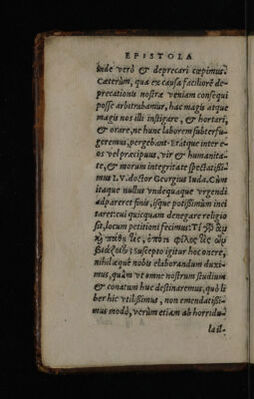 EPISTOLA
inde verò & deprecari cœpimus.
Cæterùm, quà ex causa faciliorē de-
precationis nostræ veniam consequi
posse arbitrabamur, hac magis atque
magis nos illi instigare, & hortari,
& orare, ne hunc laborem subterfu-
geremus, pergebant. Eratque inter e-
os vel præcipuus, vir & humanita-
te, & morum integritate spectatißi-
mus I. V. doctor Georgius Iuda. Cùm
itaque nullus vndequaque vrgendi
adpareret finis, isque potißimùm inci
taret: cui quicquam denegare religio
sit, locum petitioni fecimus:
suscepto igitur hoc onere,
nihil æquè nobis elaborandum duxi-
mus, quàm vt omne nostrum studium
& conatum huc destinaremus, quò li
ber hic vtilißimus, non emendatißi-
mus modò, verùm etiam ab horridu-